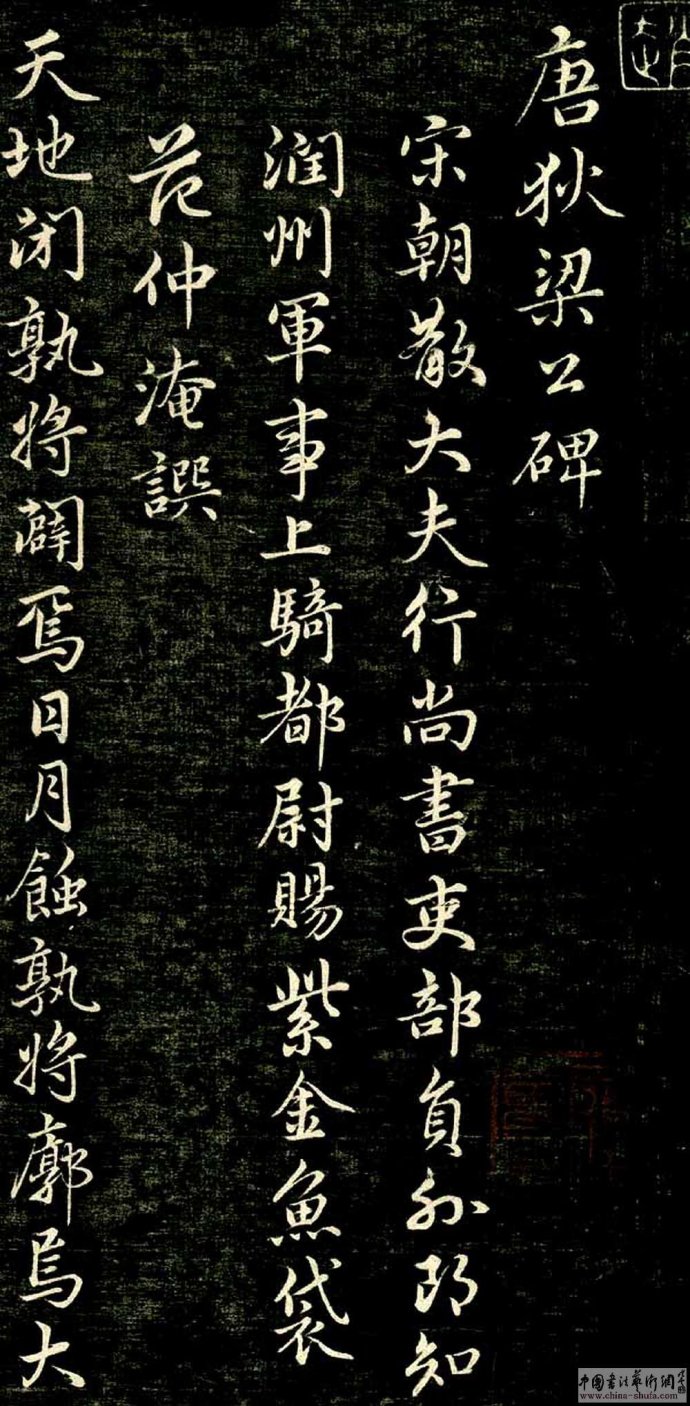 唐狄梁公碑
宋朝散大夫行尚書吏部員外郎知
潤州軍事上騎都尉賜紫金魚袋
范仲淹譔
天地閉孰將闢焉日月蝕孰將廓焉大
中国书法艺术網
www.china-shufa.com